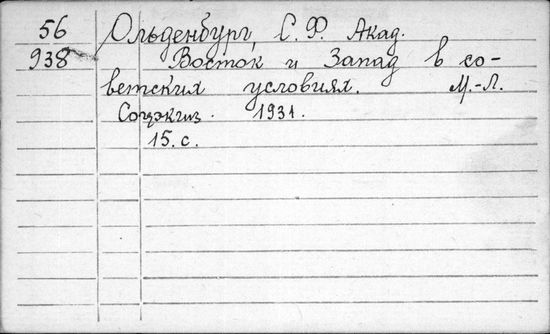 56 Ольденбург, С. Ф. Акад.
938 Восток и Запад в со-
ветских условиях. М.-Л.
Соцэкгиз. 1931.
15. с.